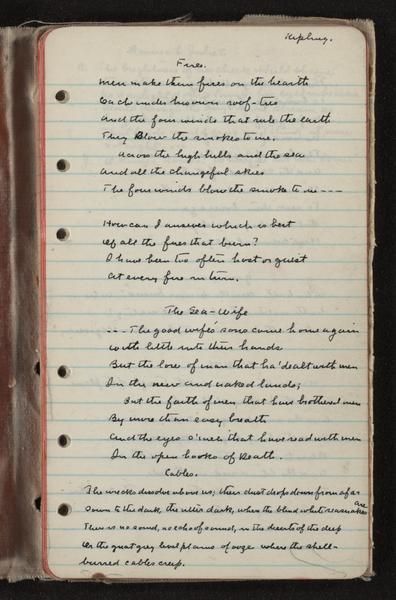 Kipling.
Fires.
Men make them fires on the hearth
Each under his own roof-tree
And the four winds that rule the earth
They Blow the smokes to me.
Across the high hills and the sea
And all the changeful skies
The four winds blow the smoke to me ---
How can I answer which is best
Of all the fires that burn?
I have been too often host or guest
At every fire in turn.
The Sea-Wife
--- The good wife's sons come home again
With little into their hands
But the lore of man that ha' dealt with men
In the new and naked lands;
But the faith of men that have brothered men
By more than easy breath
And the eyes o' men that have read with men
In the open books of Death.
Cables.
The wrecks dissolve above us; their dust drops down from afar
Down to the dark, the utter dark, where the blind white seasnakes are
There is no sound, no echo of sound, in the deserts of the deep
Or the great grey level plains of ooze where the shell-
burred cables creep.